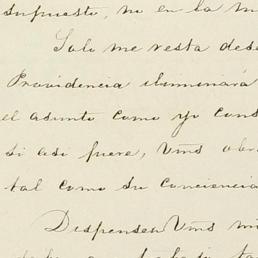 supuesto, no en la m
Solo me resta dese
Providencia iluminará
el asunto como yo cons
si asi fuere, Vms obr
tal como su conciencia
Dispensen Vms mi